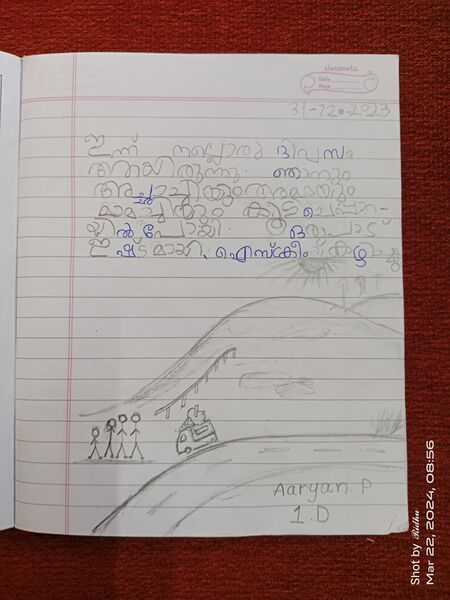 classmate
Date
Page
31-12-2023
ഇന്ന് നല്ലൊരു ദിവസം
ആയിരുന്നു. ഞാനും
കൂടെ
യിൽ പോയി. ഒരുപാട്
ഇഷ്ടമായി. ഐസ്ക്രീം
Aaryan. P
1. D
Shot by Ridhu
Mar 22, 2024, 08:56